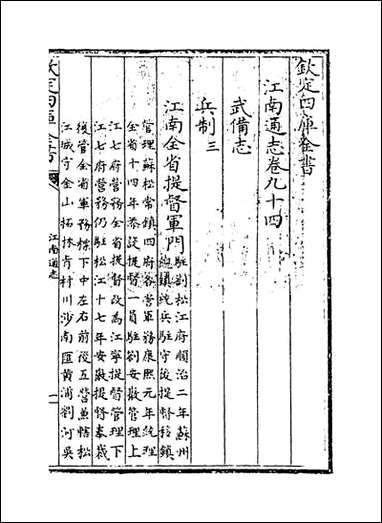 欽定四庫全書
江南通志卷九十四
武備志
兵制三
江南全省提督軍門
駐劄松江府順治二年蘇州
總鎮統兵駐守後提督移鎮
管理蘇松常鎮四府各營軍務康熙元年統理
全省十四年添設提督一員駐劄安徽管理上
江七府營務全省提督改為江寧提督管理下
江七府營務仍駐松江十七年安徽提督奉裁
後管全省軍務標下中左右前後五營兼轄松
江城守金山柘林青村川沙南匯黃浦劉河吳
欽定四庫全書
江南通志
一